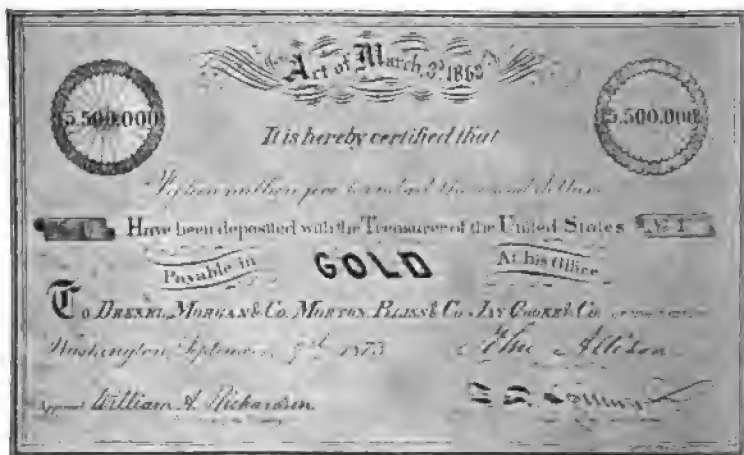 Act of March 3ᵈ 1863
15.500.000
15.500.000
It is hereby certified that
Fifteen million five hundred thousand dollars
Nº 1
Have been deposited with the Treasurer of the United States
Nº 1
Payable in
GOLD
At his Office
To DREXEL, MORGAN & CO. MORTON, BLISS & CO. JAY COOKE & CO.
Washington, September 1873
John Allison
William A. Richardson